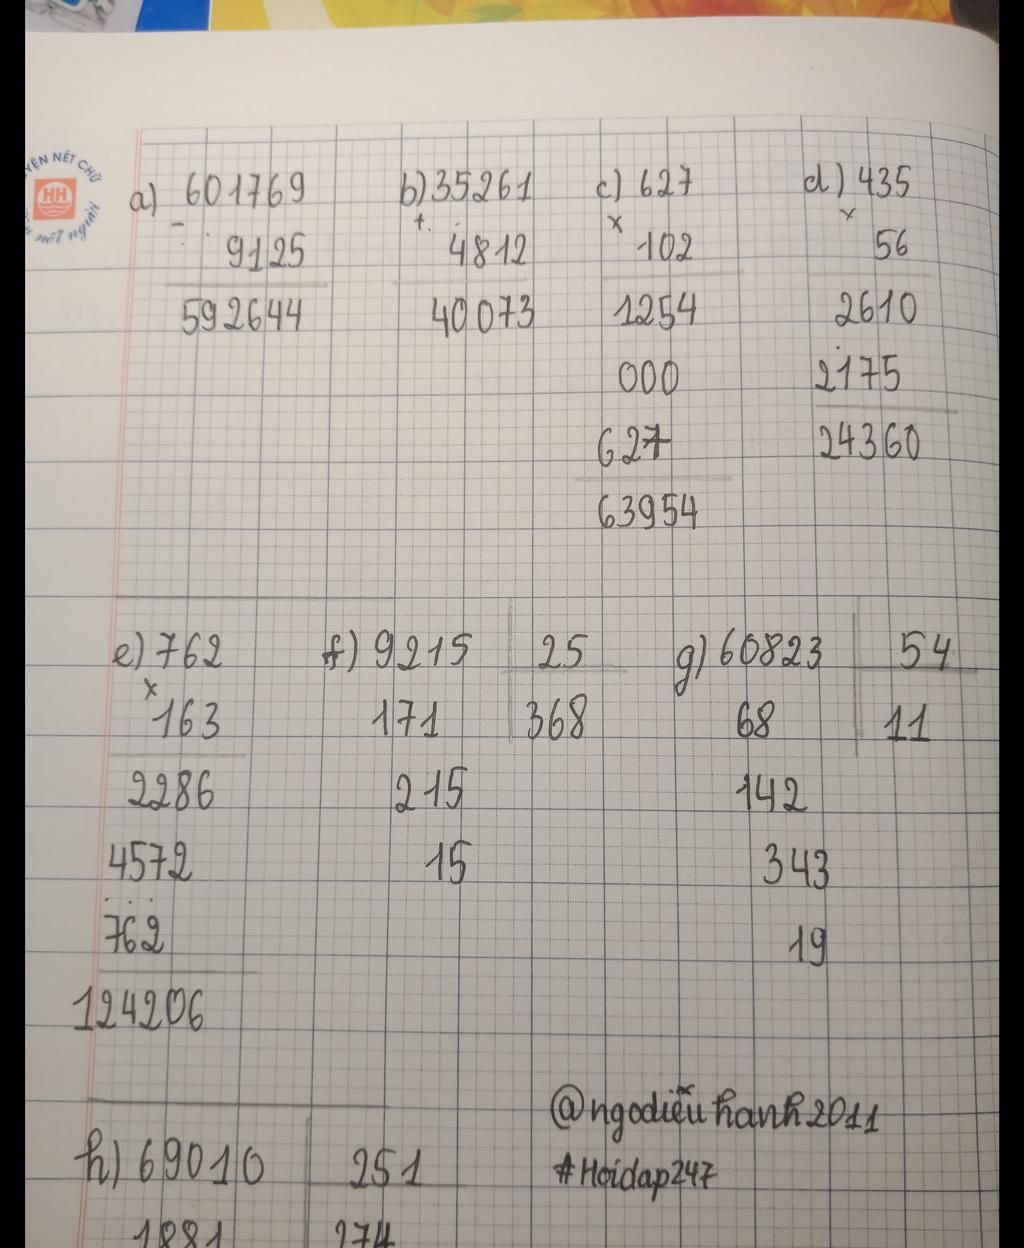 YỆN NÉT CHỮ
HH
nết người
a) 601769 b) 35261 c) 627 d) 435
- + x x
9125 4812 102 56
592644 40073 1254 2610
000 2175
627 24360
63954
e) 762 f) 9215 25 g) 60823 54
x
163 171 368 68 11
2286 215 142
4572 15 343
762 19
124206
@ngodiễuhanh2011
h) 69010 251 #Hoidap247
1881 274